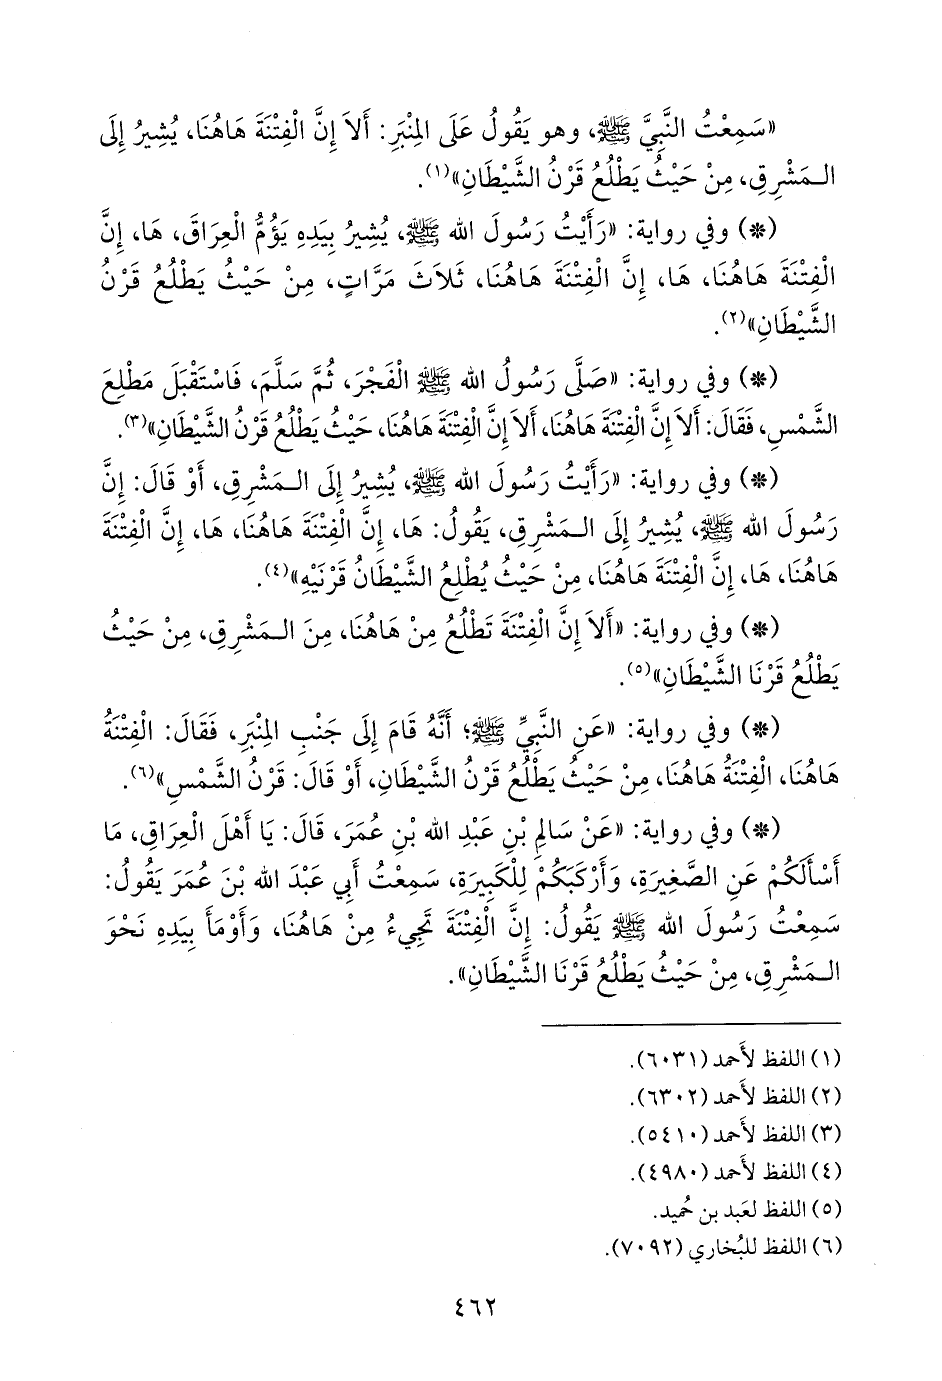 «سَمِعْتُ النَّبِيَّ ﷺ، وهو يَقُولُ عَلَى المِنْبَرِ: أَلاَ إِنَّ الْفِتْنَةَ هَاهُنَا، يُشِيرُ إِلَى
الـمَشْرِقِ، مِنْ حَيْثُ يَطْلُعُ قَرْنُ الشَّيْطَانِ»(١).
(*) وفي رواية: «رَأَيْتُ رَسُولَ الله ﷺ، يُشِيرُ بِيَدِهِ يَؤُمُّ الْعِرَاقَ، هَا، إِنَّ
الْفِتْنَةَ هَاهُنَا، هَا، إِنَّ الْفِتْنَةَ هَاهُنَا، ثَلاَثَ مَرَّاتٍ، مِنْ حَيْثُ يَطْلُعُ قَرْنُ
الشَّيْطَانِ»(٢).
(*) وفي رواية: «صَلَّى رَسُولُ الله ﷺ الْفَجْرَ، ثُمَّ سَلَّمَ، فَاسْتَقْبَلَ مَطْلِعَ
الشَّمْسِ، فَقَالَ: أَلاَ إِنَّ الْفِتْنَةَ هَاهُنَا، أَلاَ إِنَّ الْفِتْنَةَ هَاهُنَا، حَيْثُ يَطْلُعُ قَرْنُ الشَّيْطَانِ»(٣).
(*) وفي رواية: «رَأَيْتُ رَسُولَ الله ﷺ، يُشِيرُ إِلَى الـمَشْرِقِ، أَوْ قَالَ: إِنَّ
رَسُولَ الله ﷺ، يُشِيرُ إِلَى الـمَشْرِقِ، يَقُولُ: هَا، إِنَّ الْفِتْنَةَ هَاهُنَا، هَا، إِنَّ الْفِتْنَةَ
هَاهُنَا، هَا، إِنَّ الْفِتْنَةَ هَاهُنَا، مِنْ حَيْثُ يُطْلِعُ الشَّيْطَانُ قَرْنَيْهِ»(٤).
(*) وفي رواية: «أَلاَ إِنَّ الْفِتْنَةَ تَطْلُعُ مِنْ هَاهُنَا، مِنَ الـمَشْرِقِ، مِنْ حَيْثُ
يَطْلُعُ قَرْنَا الشَّيْطَانِ»(٥).
(*) وفي رواية: «عَنِ النَّبِيِّ ﷺ؛ أَنَّهُ قَامَ إِلَى جَنْبِ المِنْبَرِ، فَقَالَ: الْفِتْنَةُ
هَاهُنَا، الْفِتْنَةُ هَاهُنَا، مِنْ حَيْثُ يَطْلُعُ قَرْنُ الشَّيْطَانِ، أَوْ قَالَ: قَرْنُ الشَّمْسِ»(٦).
(*) وفي رواية: «عَنْ سَالِمِ بْنِ عَبْدِ الله بْنِ عُمَرَ، قَالَ: يَا أَهْلَ الْعِرَاقِ، مَا
أَسْأَلَكُمْ عَنِ الصَّغِيرَةِ، وَأَرْكَبَكُمْ لِلْكَبِيرَةِ، سَمِعْتُ أَبِي عَبْدَ الله بْنَ عُمَرَ يَقُولُ:
سَمِعْتُ رَسُولَ الله ﷺ يَقُولُ: إِنَّ الْفِتْنَةَ تَجِيءُ مِنْ هَاهُنَا، وَأَوْمَأَ بِيَدِهِ نَحْوَ
الـمَشْرِقِ، مِنْ حَيْثُ يَطْلُعُ قَرْنَا الشَّيْطَانِ».
(١) اللفظ لأَحمد (٦٠٣١).
(٢) اللفظ لأَحمد (٦٣٠٢).
(٣) اللفظ لأَحمد (٥٤١٠).
(٤) اللفظ لأَحمد (٤٩٨٠).
(٥) اللفظ لعَبد بن حُميد.
(٦) اللفظ للبُخاري (٧٠٩٢).
٤٦٢